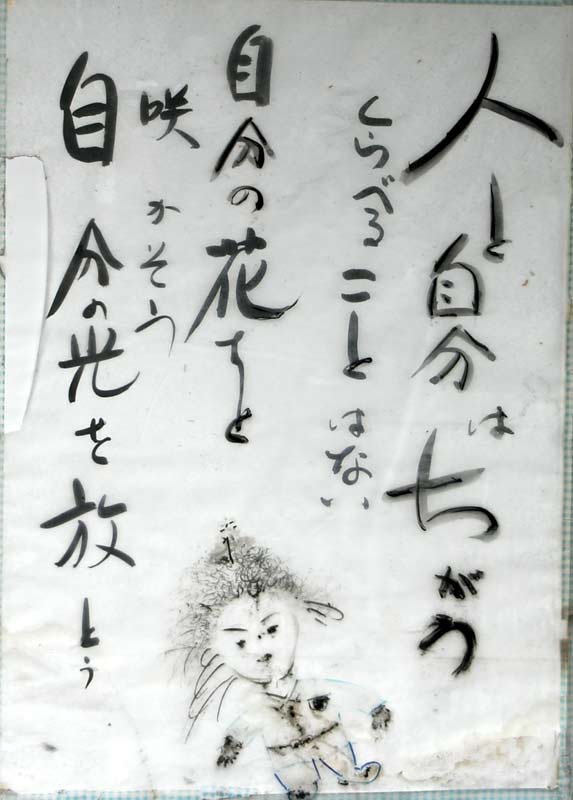 人と自分はちがう
くらべることはない
自分の花を
咲かそう
自分の光を放とう